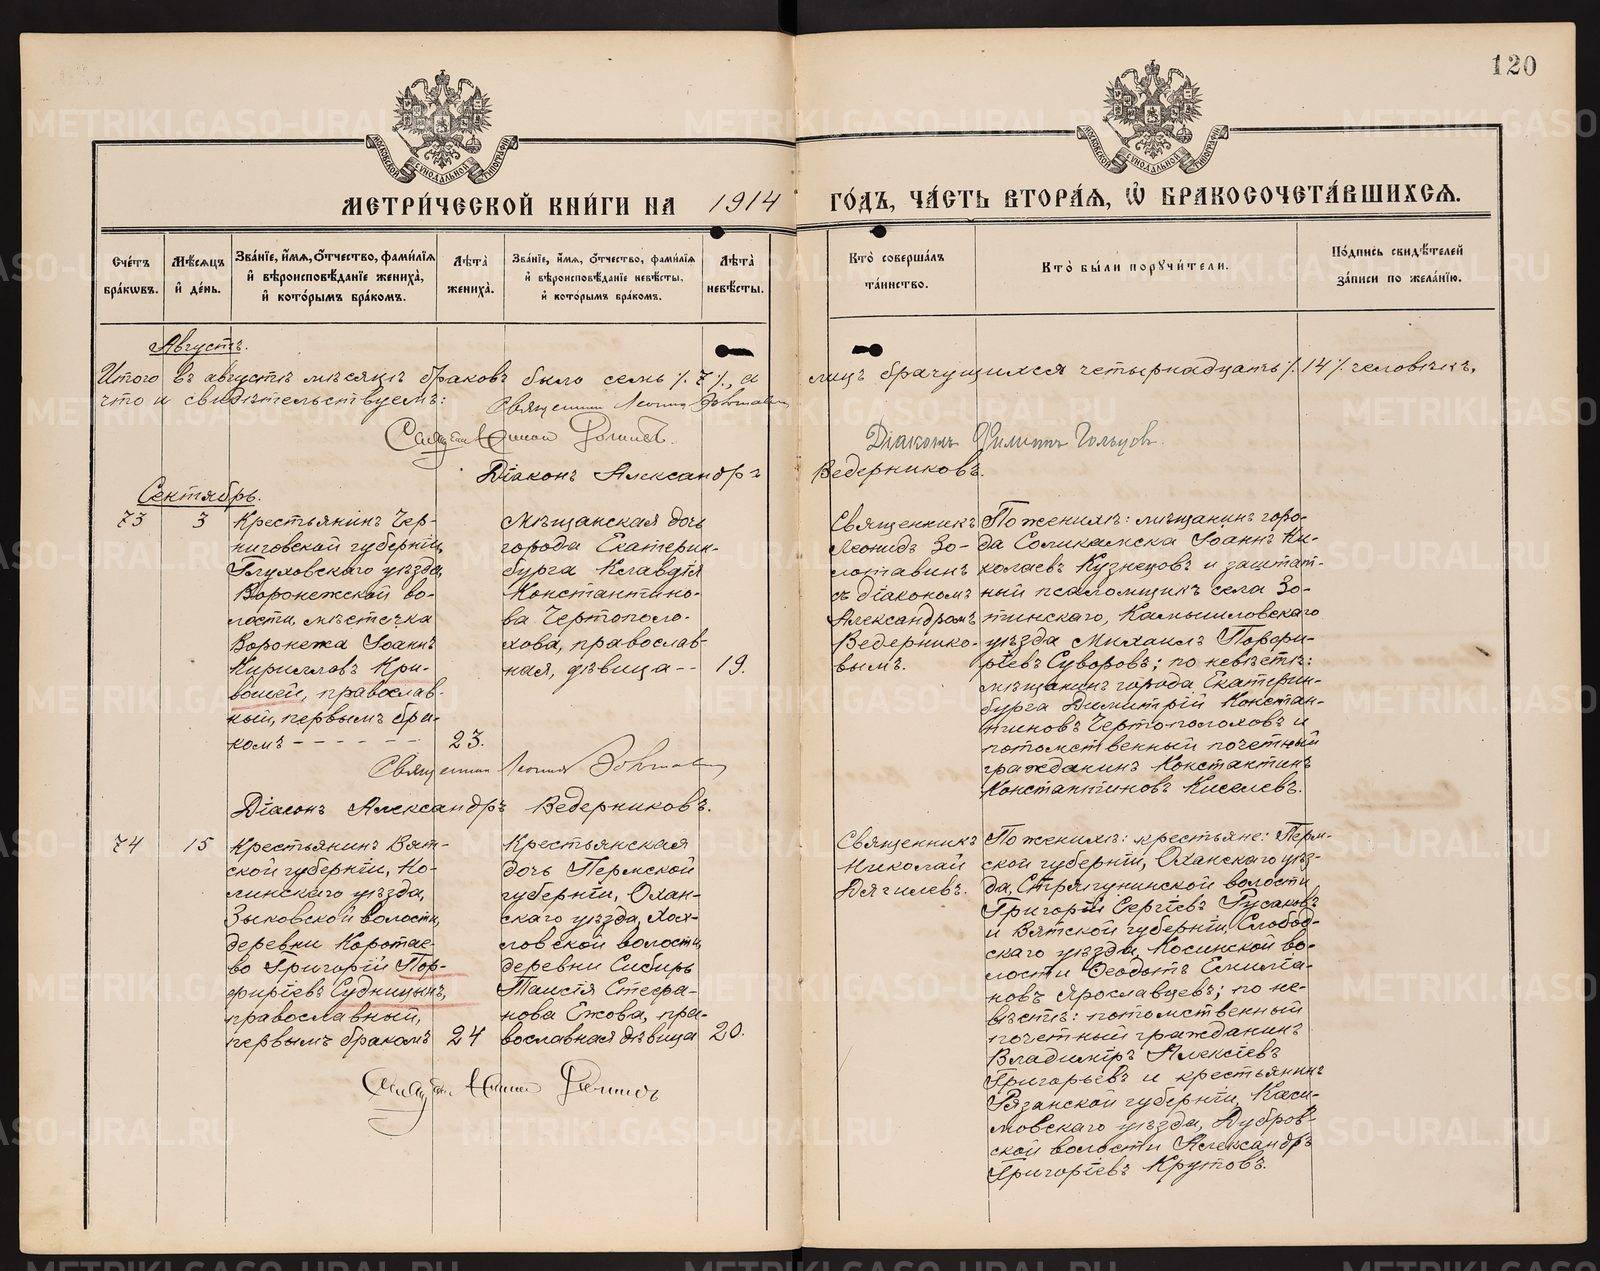 120
МОСКОВСКОЙ СѴНОДАЛЬНОЙ ТИПОГРАФІИ
МОСКОВСКОЙ СѴНОДАЛЬНОЙ ТИПОГРАФІИ
МЕТРИ́ЧЕСКОЙ КНИ́ГИ НА 1914 ГО́ДЪ, ЧА́СТЬ ВТОРА́Я, Ѽ БРАКОСОЧЕТА́ВШИХСЯ.
Сче́тъ бра́кωвъ.
Мѣ́сяцъ и҆ де́нь.
Зва́нїе, и҆́мя, о҆́тчество, фами́лїя и҆ вѣроисповѣ́данїе жениха̀, и҆ кото́рымъ бра́комъ.
Лѣ́та̀ жениха̀.
Зва́нїе, и҆́мя, о҆́тчество, фами́лїя и҆ вѣроисповѣ́данїе невѣ́сты, и҆ кото́рымъ бра́комъ.
Лѣ́та̀ невѣ́сты.
Кто̀ соверша́лъ та́инство.
Кто̀ бы́ли порꙋчи́тели.
По́дпись свидѣ́телей за́писи по жела́нїю.
Августъ.
Итого въ августѣ мѣсяцѣ браковъ было семь ٪ 7 ٪, а лицъ брачущихся четырнадцать ٪ 14 ٪ человѣкъ,
что и свидѣтельствуемъ: Священникъ Леонидъ Золотавинъ
Діаконъ Филиппъ Гольцовъ.
Діаконъ Александръ Ведерниковъ.
Сентябрь.
73
3
Крестьянинъ Чер-
ниговской губерніи,
Глуховскаго уѣзда,
Воронежской во-
лости, мѣстечка
Воронежа Іоаннъ
Кирилловъ Кри-
вошей, православ-
ный, первымъ бра-
комъ - - - - - -
23.
Мѣщанская дочь
города Екатерин-
бурга Клавдія
Константино-
ва Чертополо-
хова, православ-
ная, дѣвица - -
19.
Священникъ
Леонидъ Зо-
лотавинъ
съ діакономъ
Александромъ
Ведернико-
вымъ.
По женихѣ: мѣщанинъ горо-
да Соликамска Іоаннъ Ни-
колаевъ Кузнецовъ и заштат-
ный псаломщикъ села Зо-
тинскаго, Камышловскаго
уѣзда Михаилъ Порфи-
ріевъ Суворовъ; по невѣстѣ:
мѣщанинъ города Екатерин-
бурга Димитрій Констан-
тиновъ Чертополоховъ и
потомственный почетный
гражданинъ Константинъ
Константиновъ Киселевъ.
Священникъ Леонидъ Золотавинъ
Діаконъ Александръ Ведерниковъ.
74
15
Крестьянинъ Вят-
ской губерніи, Но-
линскаго уѣзда,
Зыковской волости,
деревни Коротае-
во Григорій Пор-
фиріевъ Судницынъ,
православный,
первымъ бракомъ
24
Крестьянская
дочь Пермской
губерніи, Охан-
скаго уѣзда, Хох-
ловской волости,
деревни Сибирь
Таисія Стефа-
нова Ежова, пра-
вославная дѣвица
20.
Священникъ
Николай
Дягилевъ.
По женихѣ: крестьяне: Перм-
ской губерніи, Оханскаго уѣз-
да, Стряпунинской волости
Григорій Сергіевъ Русаковъ
и Вятской губерніи, Слобод-
скаго уѣзда, Косинской во-
лости Ѳеодотъ Емиліа-
новъ Ярославцевъ; по не-
вѣстѣ: потомственный
почетный гражданинъ
Владиміръ Алексіевъ
Григорьевъ и крестьянинъ
Рязанской губерніи, Каси-
мовскаго уѣзда, Дубров-
ской волости Александръ
Григоріевъ Крутовъ.
METRIKI.GASO-URAL.RU